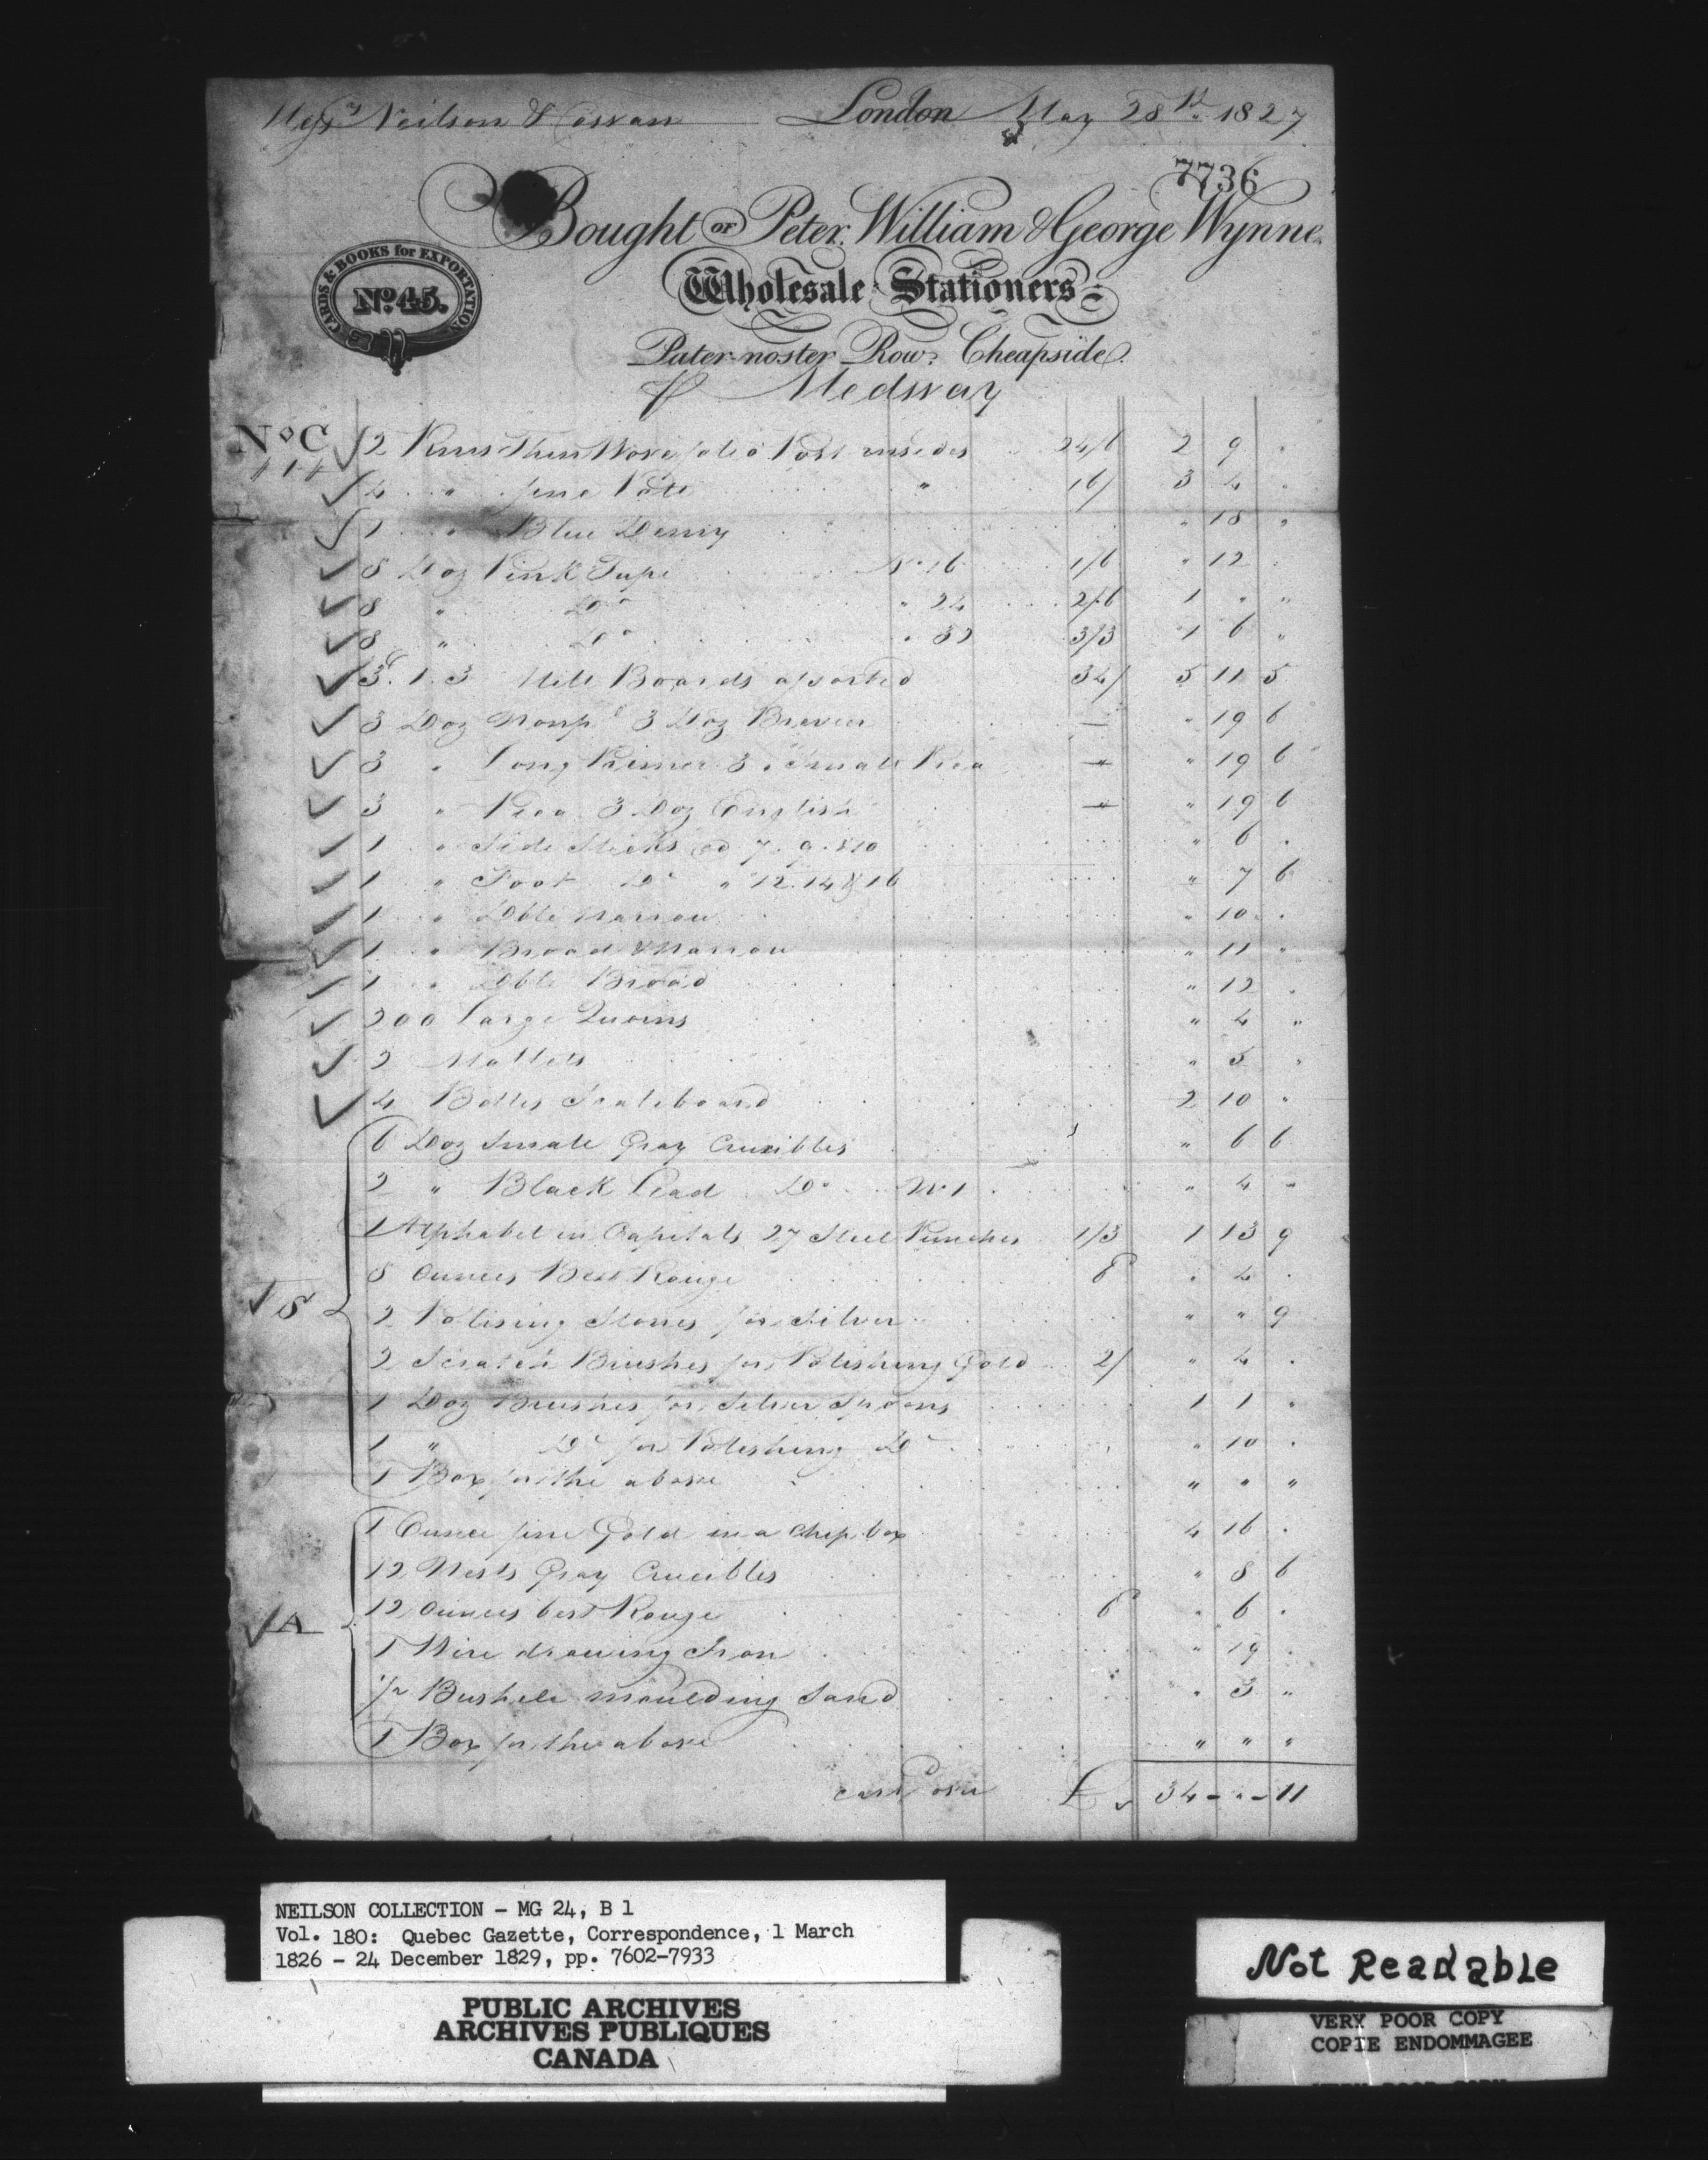 Messrs Neilson & Cowan London May 28th 1827
7736
Bought of Peter, William & George Wynne,
CARDS & BOOKS for EXPORTATION
No. 45.
Wholesale Stationers
Pater-noster Row, Cheapside.
P Medway
No C 2 Rms Thin Wove folio Post insides 24/6 2 9 .
4 " fine Pott " 16/ 3 4 .
1 " Blue Demy " 18 "
8 Doz Pink Tape No 16 1/6 " 12 .
8 " Do " 24 2/6 1 " "
8 " Do " 32 3/3 1 6 "
3c. 1. 3 Mill Boards assorted 34/ 5 11 5
3 Doz Nonpl 3 Doz Brevier — " 19 6
3 " Long Primer 3 " Small Pica " 19 6
3 " Pica 3 Doz English " 19 6
1 " Side Sticks @ 7. 9. & 10 " 6 .
1 " Foot Do " 12. 14 & 16 " 7 6
1 " Dble Narrow " 10 .
1 " Broad & Narrow " 11 "
1 " Dble Broad " 12 .
200 Large Quoins " 4 "
2 Mallets " 5 "
4 Bolts Scaleboard 2 10 "
6 Doz Small Gray Crucibles " 6 6
2 " Black Lead Do No 1 " 4 "
1 Alphabet in Capitals 27 Steel Punches 1/3 1 13 9
8 Ounces Best Rouge 6 " 4 .
S 2 Polising Stones for Silver " " 9
2 Scratch Brushes for Polishing Gold 2/ " 4 .
1 Doz Brushes for Silver Spoons 1 1 "
1 " Do for Polishing Do " 10 .
1 Box for the above " " "
1 Ounce fine Gold in a chip box 4 16 .
12 Nests Gray Crucibles " 8 6
A 12 Ounces best Rouge 6 " 6 .
1 Wire drawing Iron " 19 .
1/2 Bushell moulding Sand " 3 "
1 Box for the above " " "
carrd over £ 34 - " - 11
NEILSON COLLECTION - MG 24, B 1
Vol. 180: Quebec Gazette, Correspondence, 1 March
1826 - 24 December 1829, pp. 7602-7933
PUBLIC ARCHIVES
ARCHIVES PUBLIQUES
CANADA
Not Readable
VERY POOR COPY
COPIE ENDOMMAGEE